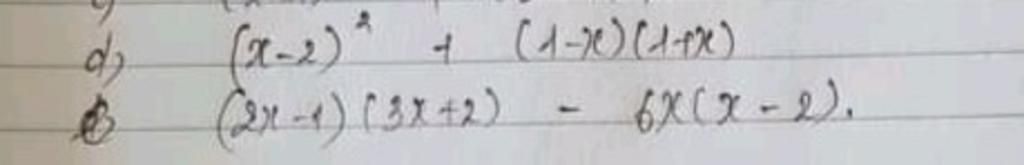 d) (x-2)² + (1-x)(1+x)
e) (2x-1)(3x+2) - 6x(x-2).